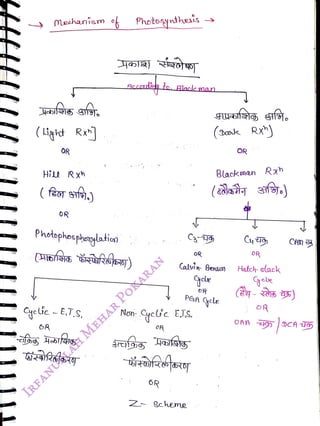 → Mechanism of Photosynthesis →
प्रकाश संश्लेषण
According to Blackman
प्रकाशिक अभि०
अप्रकाशिक अभि०
(Light Rxn)
(Dark Rxn)
OR
OR
Hill Rxn
Blackman Rxn
(हिल अभि०)
(ब्लैकमैन अभि०)
OR
Photophosphorylation
C₃-चक्र
C₄ चक्र
CAM चक्र
(प्रकाशिक फॉस्फोरिलीकरण)
OR
OR
Calvin Benson Cycle
Hatch slack Cycle
OR
(हैच - स्लैक चक्र)
PGA Cycle
OR
OAA चक्र / DCA चक्र
Cyclic - E.T.S.
Non-Cyclic E.T.S.
OR
OR
चक्रिक प्रकाशिक
अचक्रिक प्रकाशिक
फॉस्फोरिलीकरण
फॉस्फोरिलीकरण
OR
Z- Scheme
MEHAR POKARAN